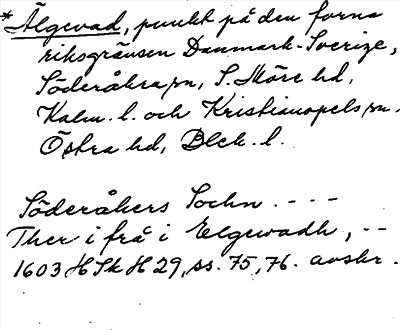 *Älgevad, punkt på den forna
riksgränsen Danmark-Sverige,
Söderåkra sn, S. Möre hd,
Kalm. l. och Kristianopels sn.
Östra hd, Blek. l.
Söderåkers Sochn. - - -
Ther i frå i Elgewadh, - -
1603 HSkH 29, ss. 75, 76. avskr.